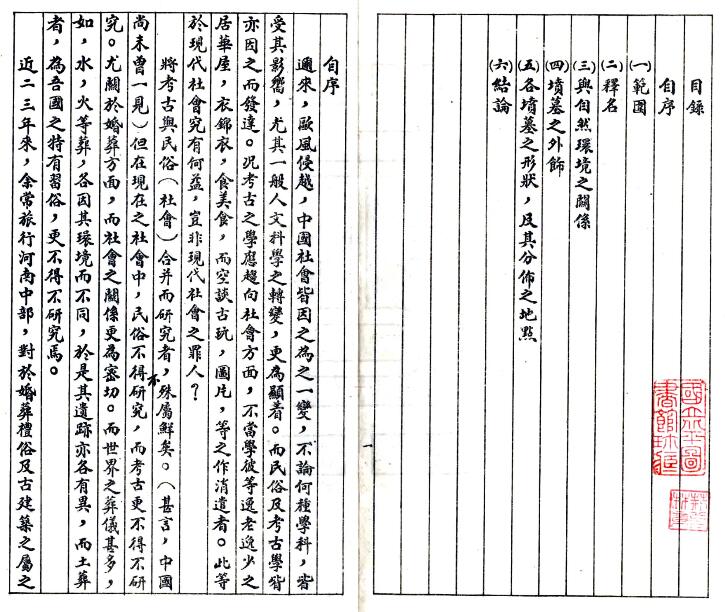 目錄
自序
(一)範圍
(二)釋名
(三)與自然環境之關係
(四)墳墓之外飾
(五)各墳墓之形狀，及其分佈之地點
(六)結論
自序
邇來，歐風侵越，中國社會皆因之為之一變，不論何種學科，皆
受其影嚮，尤其一般人文科學之轉變，更為顯着。而民俗及考古學皆
亦因之而發達。況考古之學應趨向社會方面，不當學彼等逸老逸少之
居華屋，衣錦衣，食美食，而空談古玩，圖片，等之作消遣者。此等
於現代社會究有何益，豈非現代社會之罪人？
將考古與民俗（社會）合并而研究者，殊屬鮮矣。（甚言，中國
尚未曾一見）但在現在之社會中，民俗不得不研究，而考古更不得不研
究。尤關於婚葬方面，而社會之關係更為密切。而世界之葬儀甚多，
如，水，火等葬，各因其環境而不同，於是其遺跡亦各有異，而土葬
者，為吾國之特有習俗，更不得不研究焉。
近二三年來，余常旅行河南中部，對於婚葬禮俗及古建築之屬之
一
國立北平圖
書館珍藏